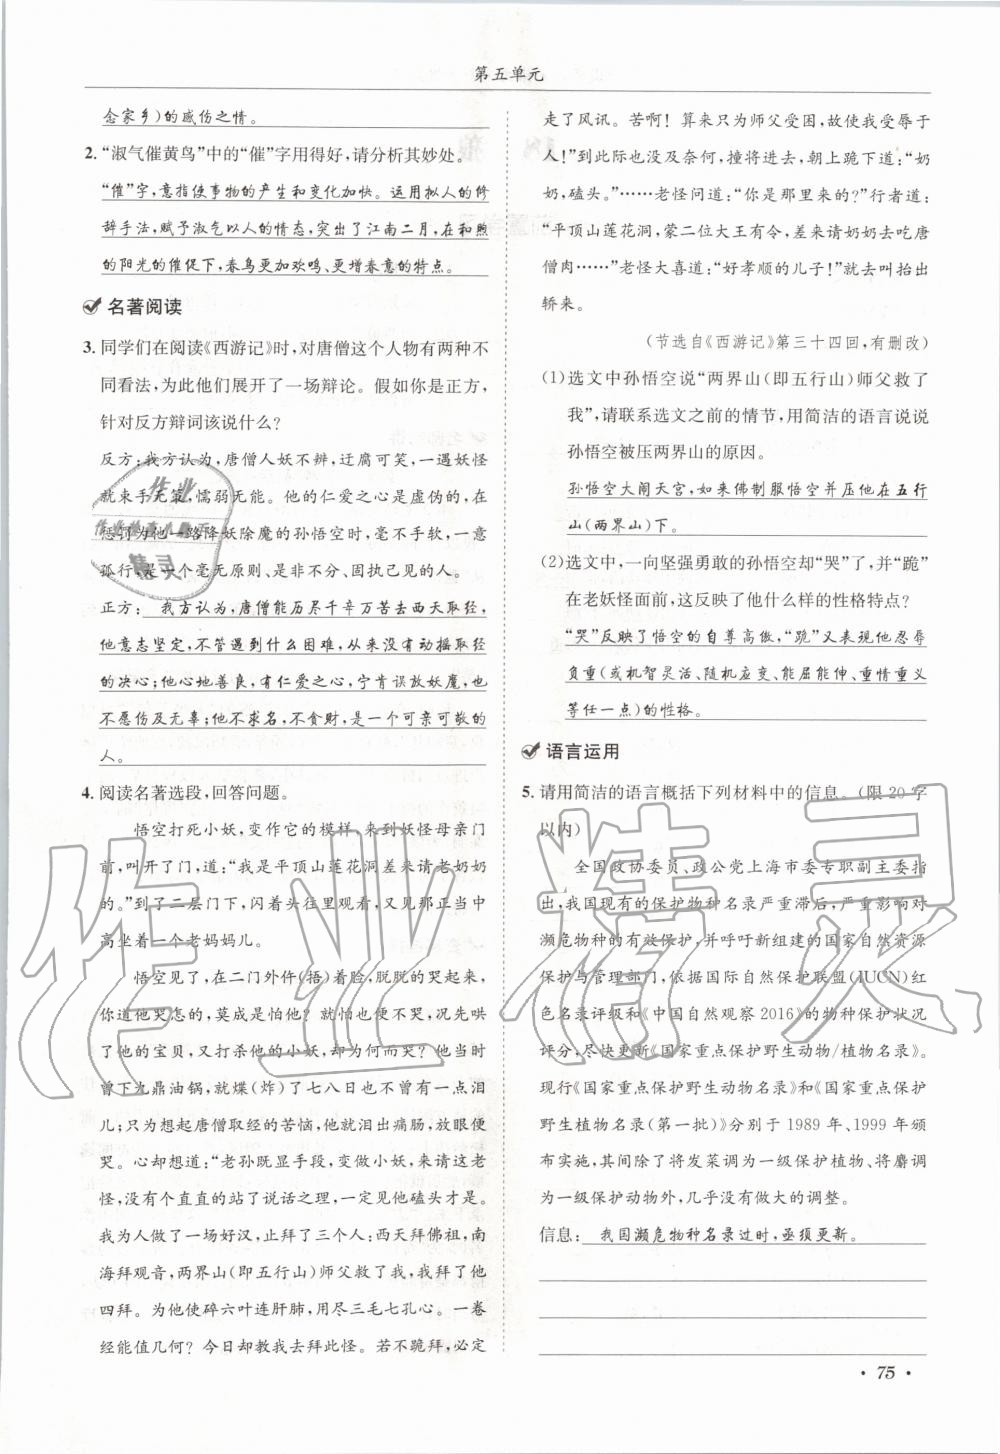 第五单元
念家乡)的感伤之情。
2. “淑气催黄鸟”中的“催”字用得好,请分析其妙处。
“催”字,意指使事物的产生和变化加快。运用拟人的修
辞手法,赋予淑气以人的情态,突出了江南二月,在和煦
的阳光的催促下,春鸟更加欢鸣、更增春意的特点。
名著阅读
3. 同学们在阅读《西游记》时,对唐僧这个人物有两种不
同看法,为此他们展开了一场辩论。假如你是正方,
针对反方辩词该说什么?
反方:我方认为,唐僧人妖不辨,迂腐可笑,一遇妖怪
就束手无策,懦弱无能。他的仁爱之心是虚伪的,在
惩罚为他一路降妖除魔的孙悟空时,毫不手软,一意
孤行,是一个毫无原则、是非不分、固执己见的人。
正方: 我方认为,唐僧能历尽千辛万苦去西天取经,
他意志坚定,不管遇到什么困难,从来没有动摇取经
的决心;他心地善良,有仁爱之心,宁肯误放妖魔,也
不愿伤及无辜;他不求名,不贪财,是一个可亲可敬的
人。
4. 阅读名著选段,回答问题。
悟空打死小妖,变作它的模样,来到妖怪母亲门
前,叫开了门,道:“我是平顶山莲花洞差来请老奶奶
的。”到了二层门下,闪着头往里观看,又见那正当中
高坐着一个老妈妈儿。
悟空见了,在二门外仵(捂)着脸,脱脱的哭起来,
你道他哭怎的,莫成是怕他?就怕也便不哭,况先哄
了他的宝贝,又打杀他的小妖,却为何而哭?他当时
曾下九鼎油锅,就煠(炸)了七八日也不曾有一点泪
儿;只为想起唐僧取经的苦恼,他就泪出痛肠,放眼便
哭。心却想道:“老孙既显手段,变做小妖,来请这老
怪,没有个直直的站了说话之理,一定见他磕头才是。
我为人做了一场好汉,止拜了三个人:西天拜佛祖,南
海拜观音,两界山(即五行山)师父救了我,我拜了他
四拜。为他使碎六叶连肝肺,用尽三毛七孔心。一卷
经能值几何?今日却教我去拜此怪。若不跪拜,必定
走了风讯。苦啊!算来只为师父受困,故使我受辱于
人!”到此际也没及奈何,撞将进去,朝上跪下道:“奶
奶,磕头。”……老怪问道:“你是那里来的?”行者道:
“平顶山莲花洞,蒙二位大王有令,差来请奶奶去吃唐
僧肉……”老怪大喜道:“好孝顺的儿子!”就叫抬出
轿来。
(节选自《西游记》第三十四回,有删改)
(1)选文中孙悟空说“两界山(即五行山)师父救了
我”,请联系选文之前的情节,用简洁的语言说说
孙悟空被压两界山的原因。
孙悟空大闹天宫,如来佛制服悟空并压他在五行
山(两界山)下。
(2)选文中,一向坚强勇敢的孙悟空却“哭”了,并“跪”
在老妖怪面前,这反映了他什么样的性格特点?
“哭”反映了悟空的自尊高傲,“跪”又表现他忍辱
负重(或机智灵活、随机应变、能屈能伸、重情重义
等任一点)的性格。
语言运用
5. 请用简洁的语言概括下列材料中的信息。(限 20 字
以内)
全国政协委员、致公党上海市委专职副主委指
出,我国现有的保护物种名录严重滞后,严重影响对
濒危物种的有效保护,并呼吁新组建的国家自然资源
保护与管理部门,依据国际自然保护联盟(IUCN)红
色名录评级和《中国自然观察 2016》的物种保护状况
评分,尽快更新《国家重点保护野生动物/植物名录》。
现行《国家重点保护野生动物名录》和《国家重点保护
野生植物名录(第一批)》分别于 1989 年、1999 年颁
布实施,其间除了将发菜调为一级保护植物、将麝调
为一级保护动物外,几乎没有做大的调整。
信息: 我国濒危物种名录过时,亟须更新。
· 75 ·
作业精灵